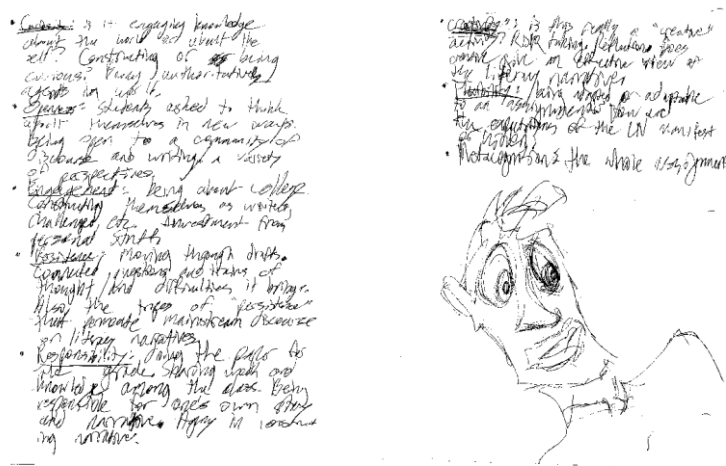 • Curiosity: is it engaging knowledge
about the world or about the
self? Constructing or being
curious?
agents in us it.
• Openness - Students asked to think
about themselves in new ways.
Being open to a community of
discourse and writing, a variety
of perspectives.
• Engagement - Being about college
Constructing themselves as writers,
challenged, etc. Investment from
personal
• Persistence: Moving through drafts.
Connected questions and trains of
thought and difficulties it brings.
Also, the tropes of "persistence"
that permeate mainstream discourse
on literacy narratives
• Responsibility: doing the paper for
the grade. Sharing work and
knowledge among the class. Being
responsible for one's own story
and narrative. Agency in construct
ing narrative.
• creativity": is this really a "creative"
activity? Reflection. Does
an effective view of
the literacy narrative
• Flexibility: being adapted or adaptable
to an assignment. How are
the expectations of the LN manifest
or hidden?
• Metacognition: the whole assignment